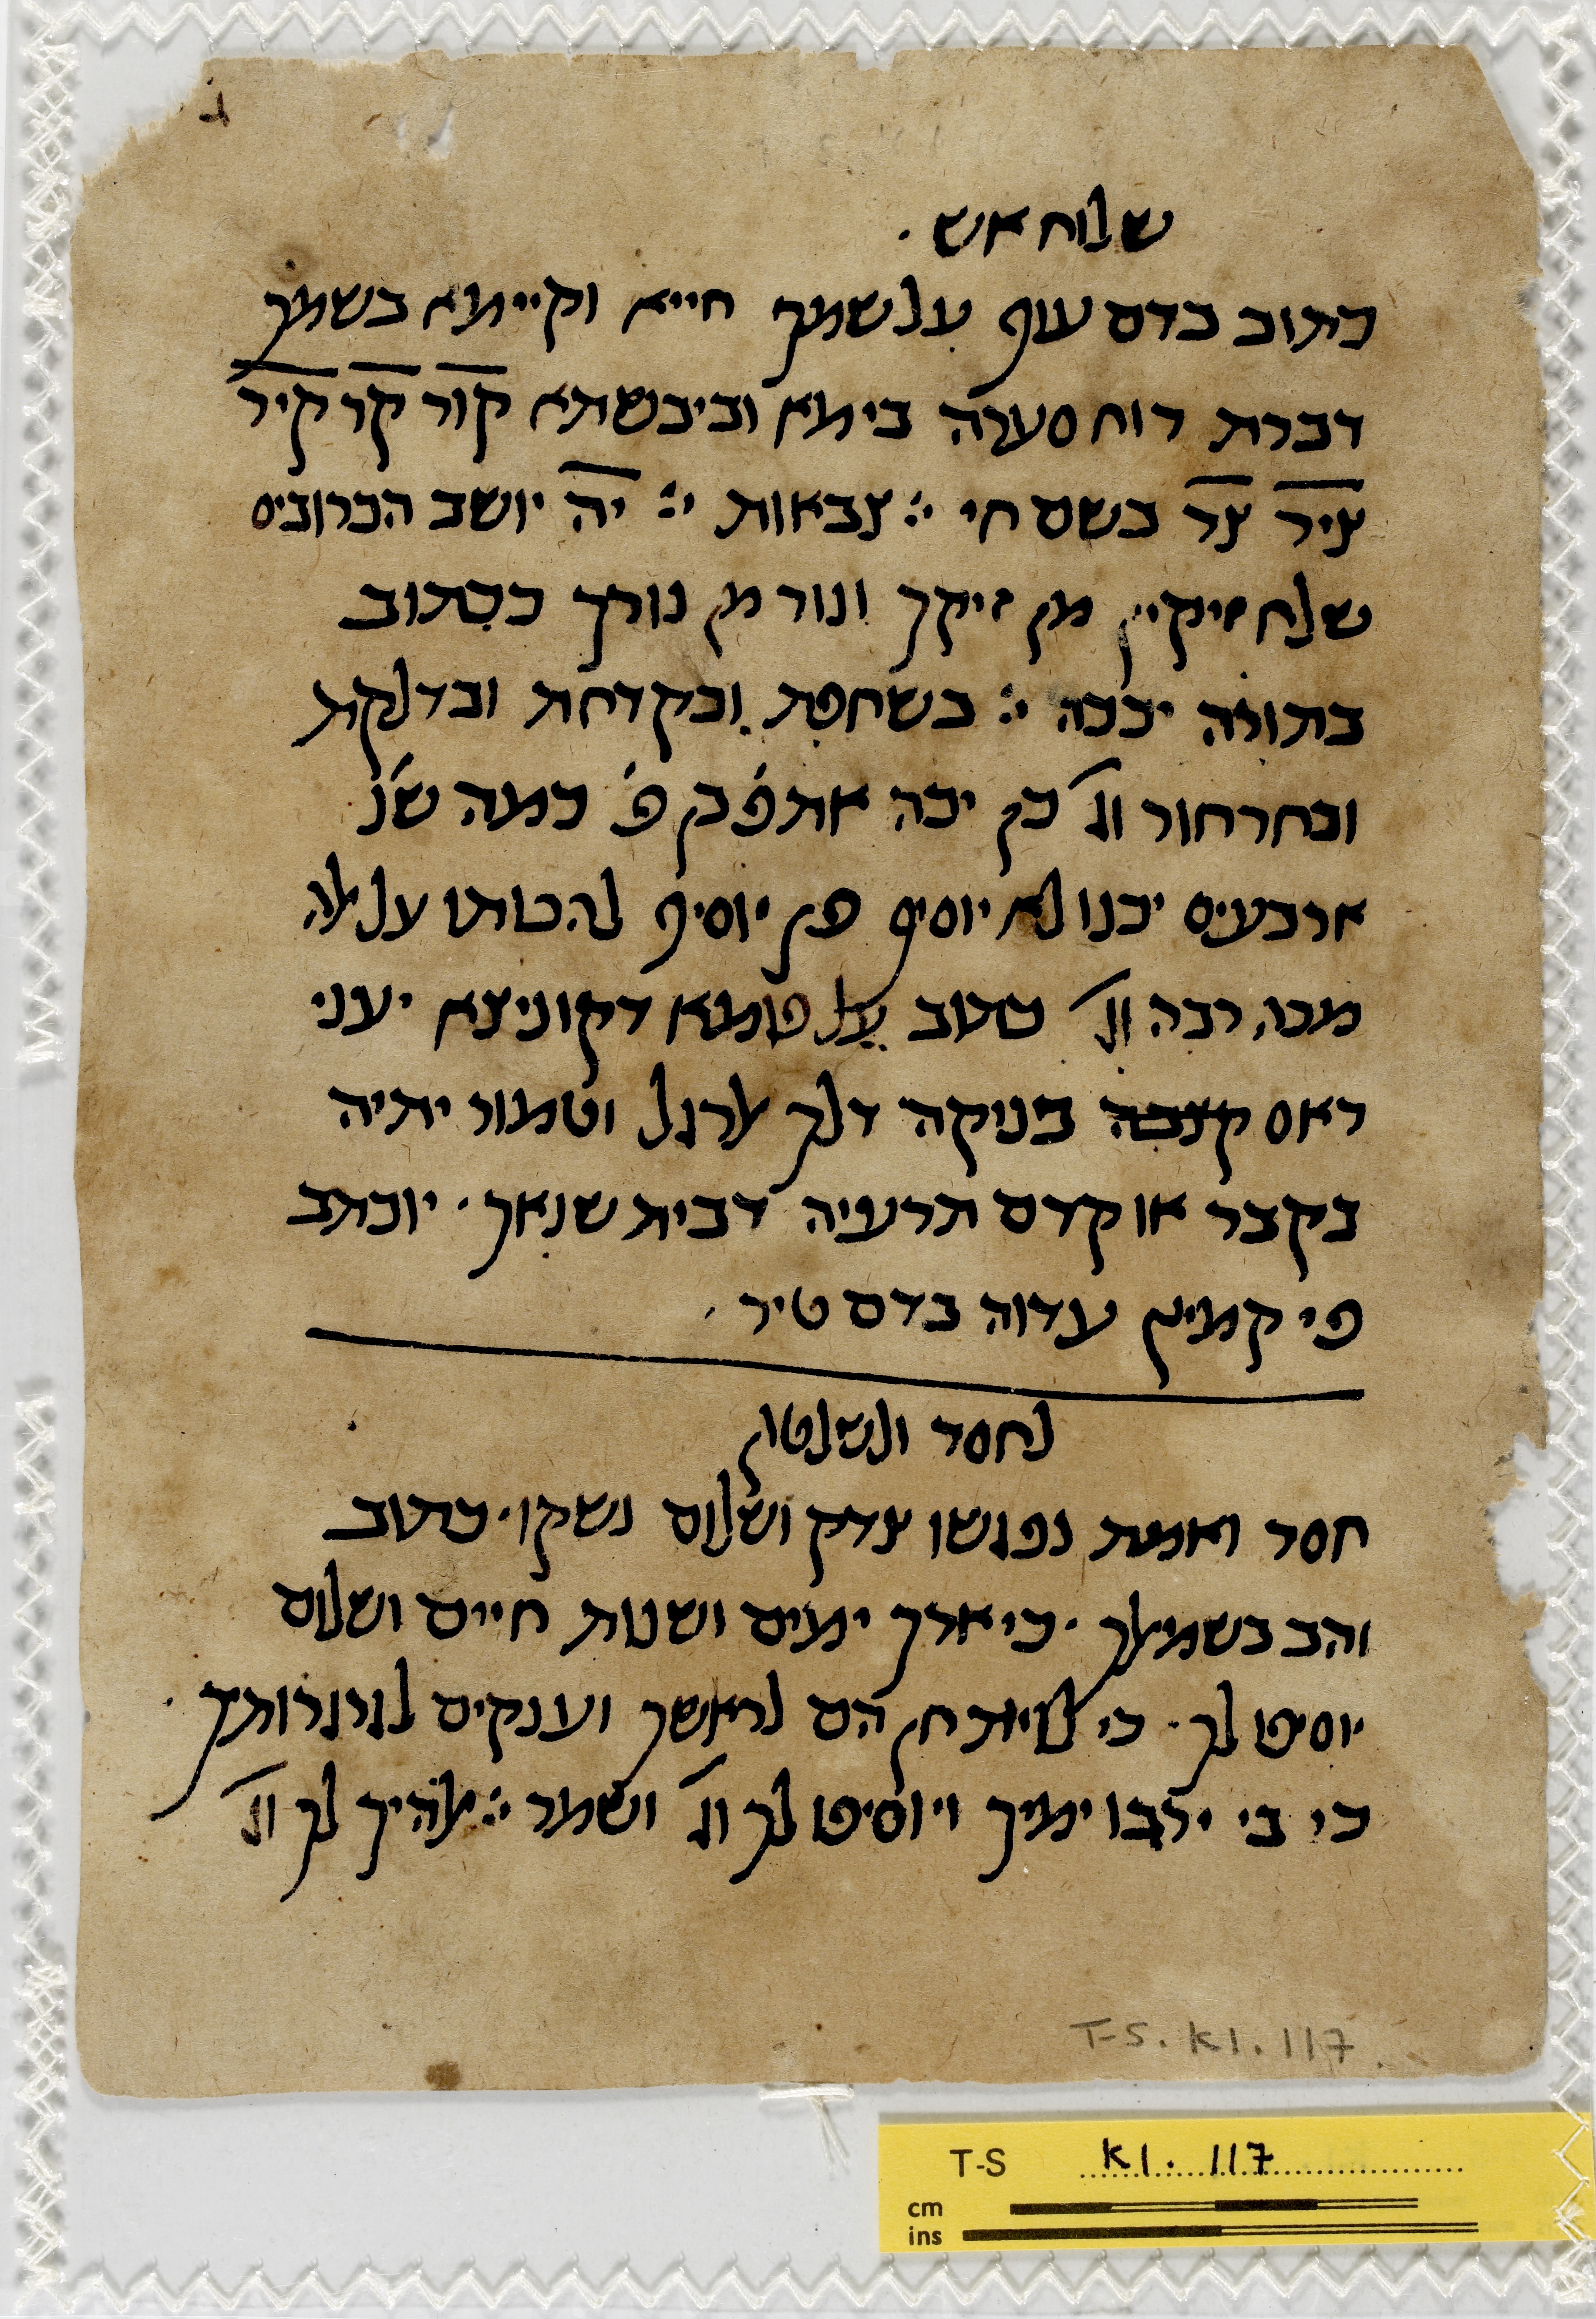 ג
שלוח אש ·
כתוב בדם עוף על שמך חייא וקיימא בשמך
דברת רוח סערה בימא וביבשתא קור קר קיר
ציר צר בשם חי ייי צבאות ייי יה יושב הכרובים
שלח זיקין מן זיקך ונור מן נורך ככתוב
בתורה יככה ייי בשחפת ובקדחת ובדלקת
ובחרחור וג׳ כן יכה את פ׳ בן פ׳ כמה שנ׳
ארבעים יכנו לא יוסיף פן יוסיף להכותו על אלה
מכה רבה וג׳ כתוב על פומא דקוניצא יעני
ראס קצבה פניקה דלך ארגל וטמור יתיה
בקבר או קדם תרעיה דבית שנאך · יוכתב
פי קמיץ עדוה בדם טיר ·
לחסד ולשלטון
חסד ואמת נפגשו צדק ושלום נשקו · כתוב
והב בשמאלך · כי ארך ימים ושנות חיים ושלום
יוסיפו לך · כי לוית חן הם לראשך וענקים לגרגרותיך ·
כי בי ירבו ימיך ויוסיפו לך וג׳ ושמר ייי אלהיך לך וג׳
T-S. K1. 117
T-S K1. 117
cm
ins